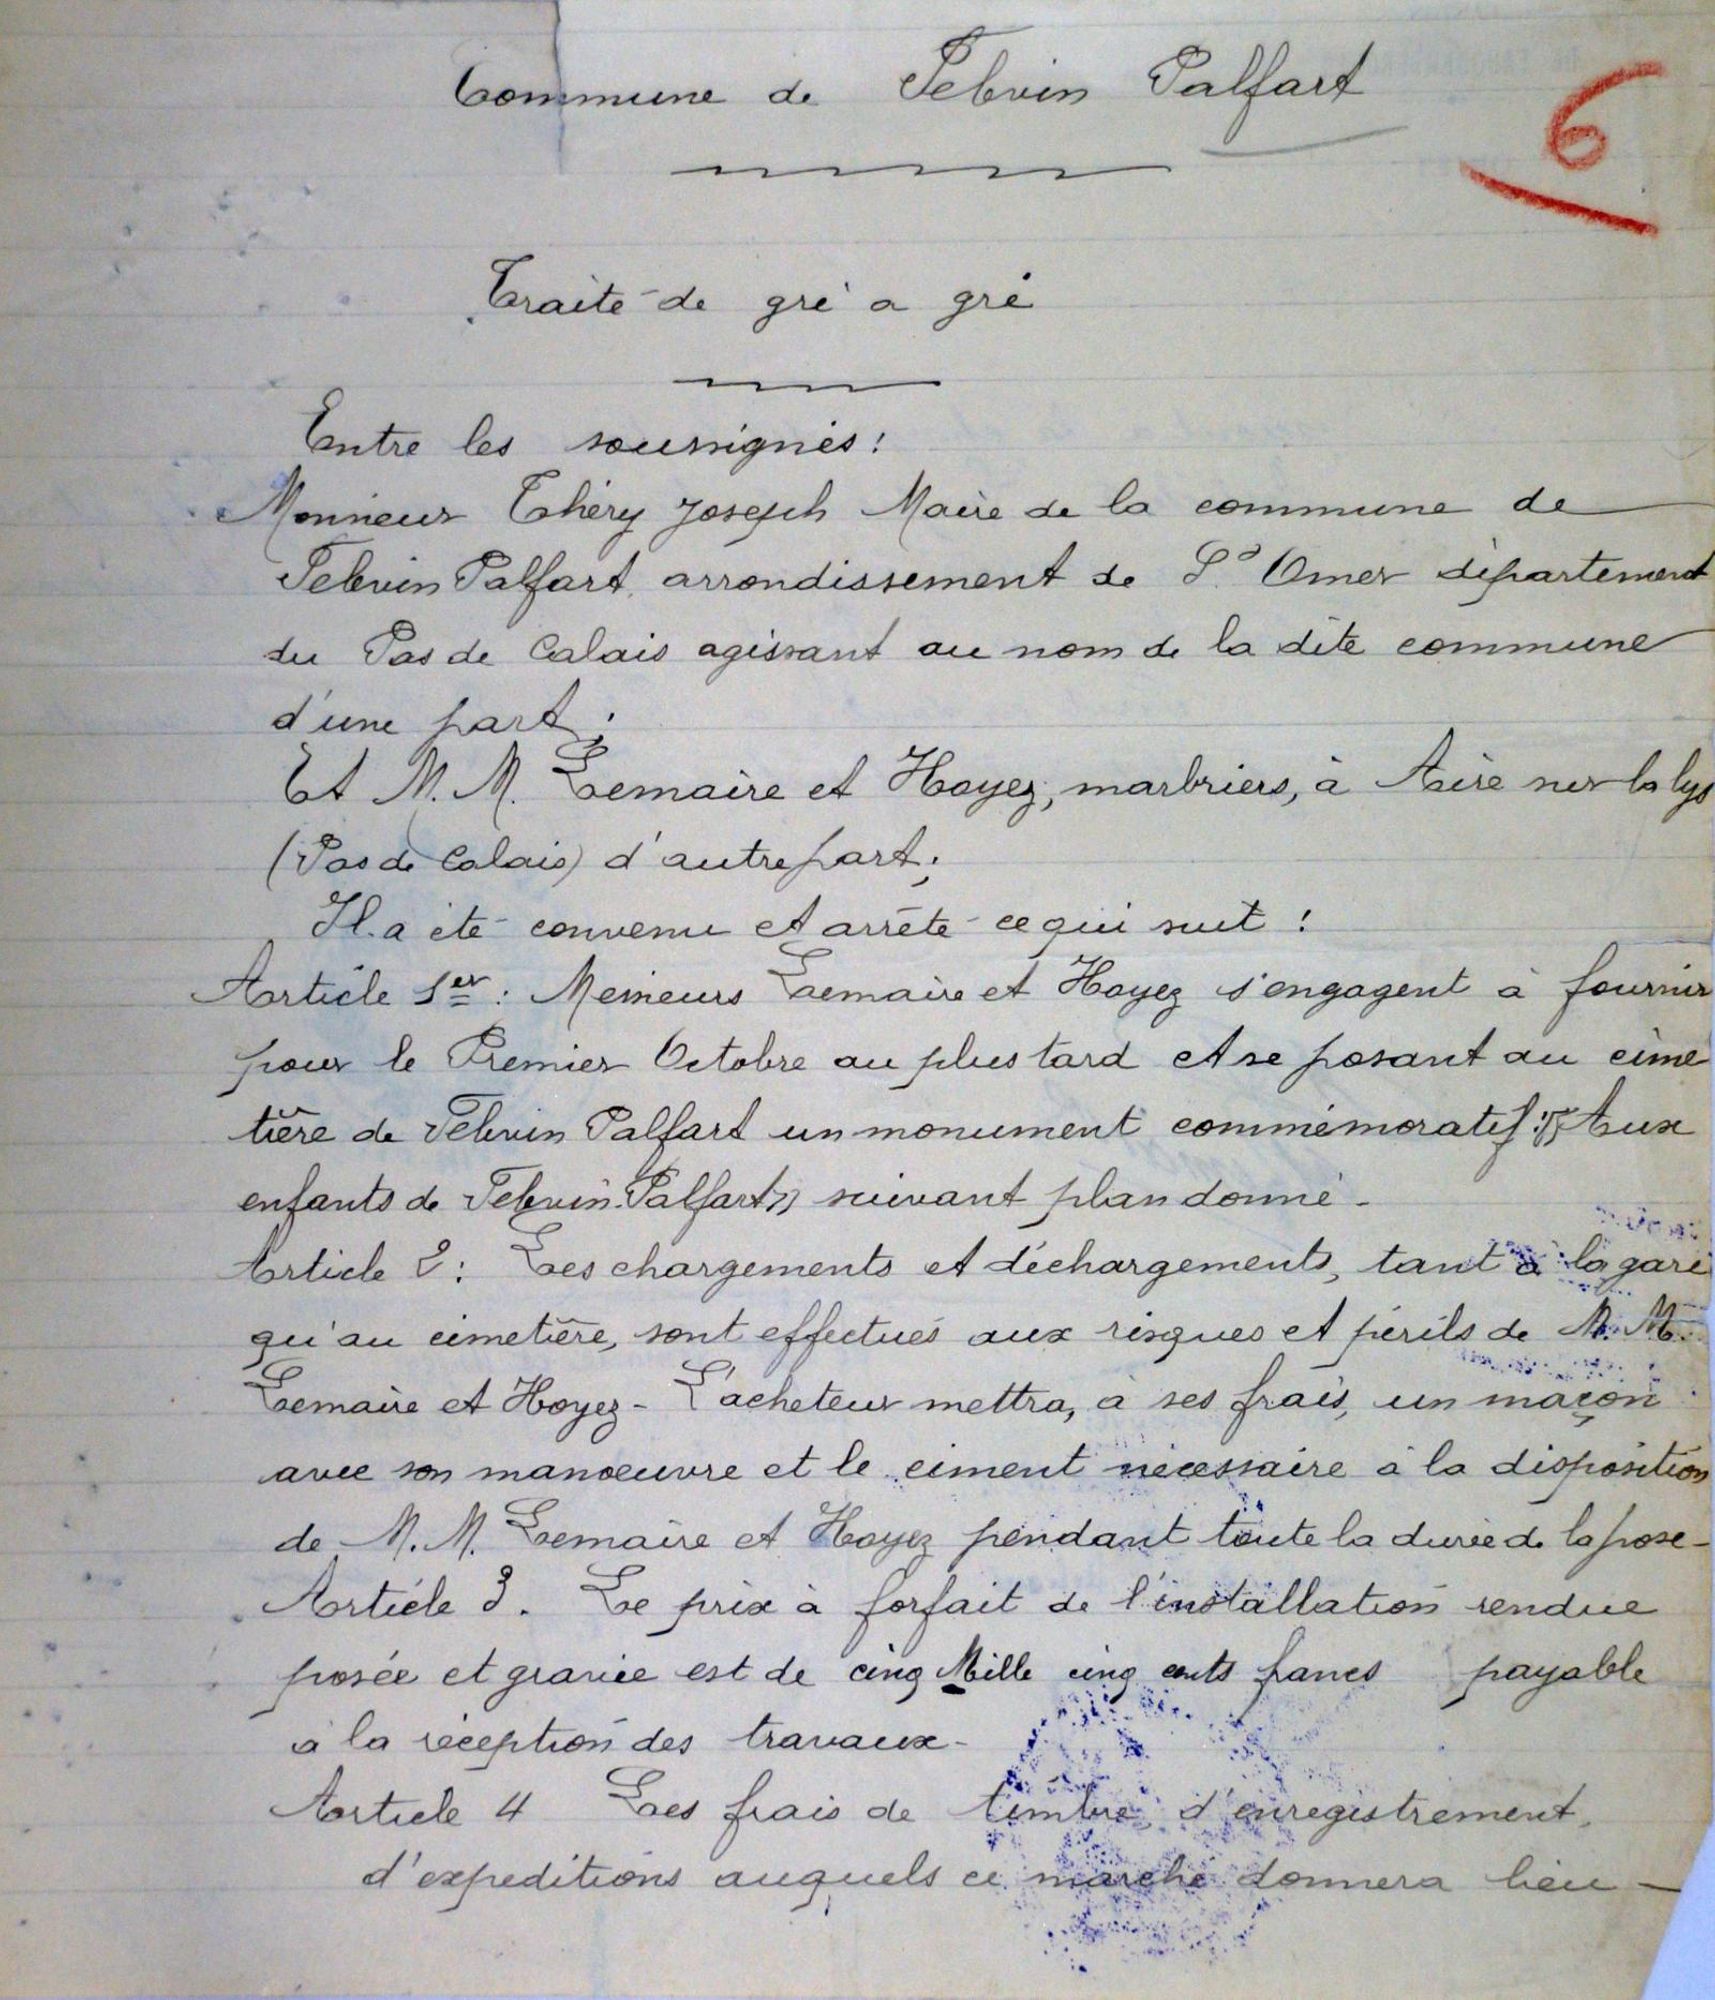 Commune de Febvin Palfart
6
Traité de gré a gré
Entre les soussignés :
Monsieur Théry Joseph Maire de la commune de
Febvin Palfart, arrondissement de St Omer département
du Pas de Calais agissant au nom de la dite commune
d'une part ;
Et M. M. Lemaire et Hoyez, marbriers, à Aire sur la lys
(Pas de Calais) d'autre part ;
Il a été convenu et arrêté ce qui suit :
Article 1er : Messieurs Lemaire et Hoyez s'engagent à fournir
pour le Premier Octobre au plus tard et se posant au cime
tière de Febvin Palfart un monument commémoratif : "Aux
enfants de Febvin-Palfart" suivant plan donné -
Article 2 : Les chargements et déchargements, tant à la gare
qu'au cimetière, sont effectués aux risques et périls de M. M.
Lemaire et Hoyez - L'acheteur mettra, à ses frais, un maçon
avec son manoeuvre et le ciment nécessaire à la disposition
de M. M. Lemaire et Hoyez pendant toute la durée de la pose -
Article 3. Le prix à forfait de l'installation rendue
posée et gravée est de cinq Mille cinq cents francs payable
à la réception des travaux -
Article 4 Les frais de timbre, d'enregistrement,
d'expeditions auquels ce marché donnera lieu -